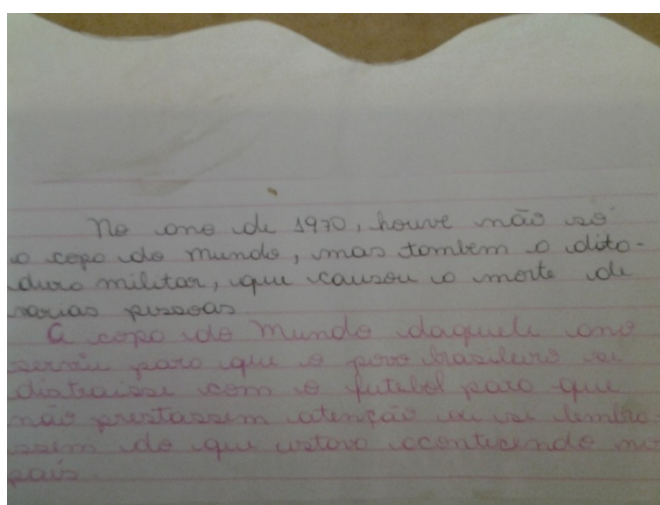 No ano de 1970, houve não só
a copa do mundo, mas também a dita-
dura militar, que causou a morte de
varias pessoas.
A copa do mundo daquele ano
serviu para que o povo brasileiro se
distraisse com o futebol para que
não prestassem atenção ou se lembra-
ssem do que estava acontecendo no
país.